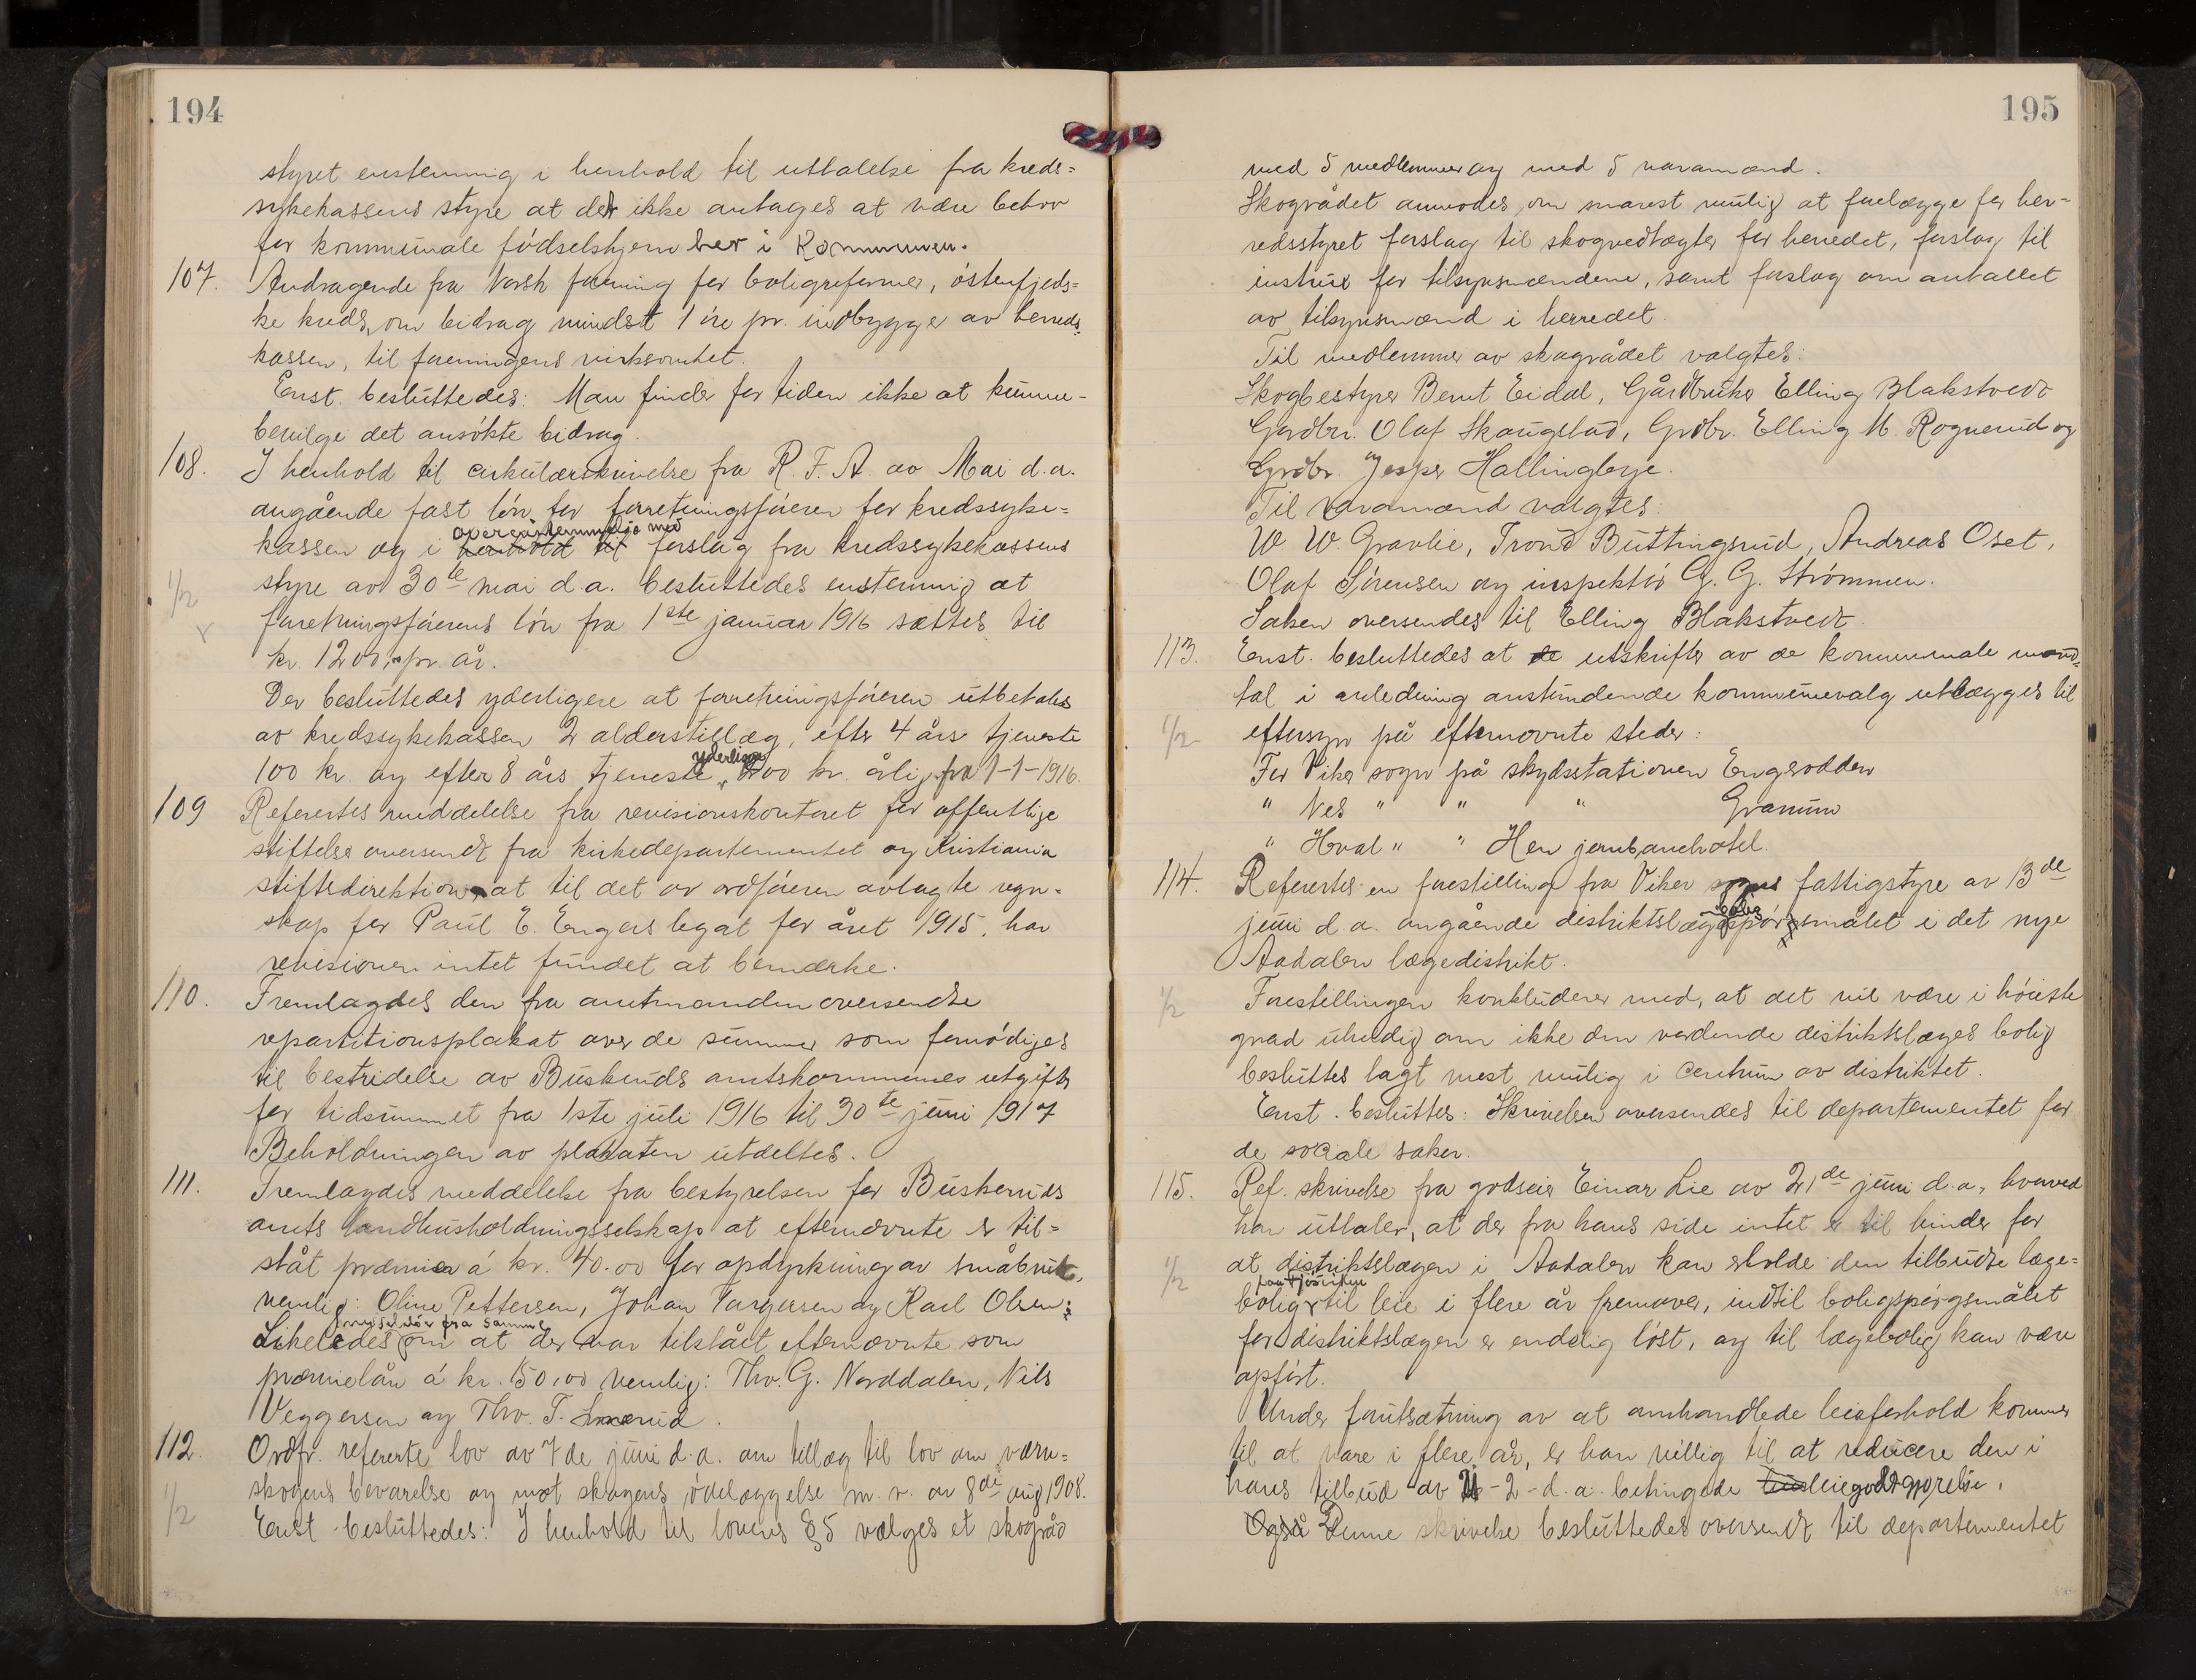 194
styret enstemmig i henhold til uttalelse fra kreds=
sykekassens styre at det ikke antages at være behov
for kommunale fødselshjem her i Kommunen.
107. Andragende fra Norsk forening for boligreformer, østenfjelds=
ke kreds, om bidrag mindst 1 øre pr. indbygger av herreds
kassen, til foreningens virksomhet.
Enst. besluttedes: Man finder for tiden ikke at kunne
bevilge det ansøkte bidrag.
108. I henhold til cirkulærskrivelse fra R. F. A. av Mai d.a.
angående fast løn for forretningsføreren for kredssyke=
overensstemmelse med
kassen og i henhold til forslag fra kredssykekassens
1/2 styre av 30te mai d a. besluttedes enstemmig at
forretningsførerens løn fra 1ste januar 1916 sættes til
kr. 1200,- pr. år.
Der besluttedes yderligere at forretningsføreren utbetales
av kredssykekassen 2 alderstillæg, efter 4 års tjeneste
yderligere
100 kr. og efter 8 års tjeneste 200 kr. årlig fra 1-1-1916.
109 Referertes meddelelse fra revisionskontoret for offentlige
stiftelser oversendt fra kirkedepartementet og Kristiania
stiftsdirektion, at til det av ordføreren avlagte regn-
skap for Paul E. Engers legat for året 1915, har
revisionen intet fundet at bemærke.
110. Fremlagdes den fra amtmanden oversendte
repartitionsplakat over de summer som fornødiges
til bestridelse av Buskeruds amtskommunes utgifter
for tidsrummet fra 1ste juli 1916 til 30te juni 1917
Beholdningen av plakaten utdeltes.
111. Fremlagdes meddelelse fra bestyrelsen for Buskeruds
amts landhusholdningsselskap at efternævnte er til=
ståt præmier á kr. 40.00 for opdyrkning av småbruk,
nemlig: Oline Pettersen, Johan Torgersen og Karl Olsen;
fra samme
Likeledes om at der var tilstået efternævnte som
præmielån á kr. 150,00 nemlig: Thv. G. Norddalen, Nils
Veggersen og Thv. T.
112. Ordfr. refererte lov av 7de juni d.a. om tillæg til lov om værn=
skogens bevarelse og mot skogens ødelæggelse m. v. av 8de aug 1908.
1/2 Enst besluttedes: I henhold til lovens § 5 vælges et skogråd
195
med 5 medlemmer og med 5 varamænd.
Skogrådet anmodes om snarest mulig at forelægge for her=
redsstyret forslag til skogvedtægter for herredet, forslag til
instrux for tilsynsmændene, samt forslag om antallet
av tilsynsmænd i herredet.
Til medlemmer av skogrådet valgtes:
Skogbestyrer Bernt Eidal, Gårdbruker Elling Blakstvedt
Gårdbr. Olaf Skaugstad, Grdbr. Elling M. Rognerud og
Grdbr. Jesper Hallingbye.
Til varamænd valgtes:
W W. Gravlie, Trond Buttingsrud, Andreas Oset,
Olaf Sørensen og inspektør G. G. Strømmen.
Saken oversendes til Elling Blakstvedt.
113. Enst. besluttedes at de utskrifter av de kommunale mand=
tal i anledning anstundende kommunevalg utlægges til
1/2 eftersyn på efternævnte steder:
For Viker sogn på skydsstationen Engerodden
" Nes " " " Granum
" Hval " " Hen jernbanehotel.
114. Referertes en forestilling fra Viker sogns fattigstyre av 13de
bolig
juni d.a. angående distriktslægespørgsmålet i det nye
Aadalen lægedistrikt.
1/2 Forestillingen konkluderer med, at det vil være i høieste
grad uheldig om ikke den vordende distriktslæges bolig
besluttes lagt mest mulig i centrum av distriktet.
Enst. besluttes: Skrivelsen oversendes til departementet for
de sociale saker.
115. Ref. skrivelse fra godseier Einar Lie av 21de juni d.a, hvorved
han uttaler, at der fra hans side intet er til hinder for
1/2 at distriktslægen i Aadalen kan erholde den tilbudte læge=
bolig til leie i flere år fremover, indtil boligspørgsmålet
for distriktslægen er endelig løst, og til lægebolig kan være
opført.
Under forutsætning av at omhandlede leieforhold kommer
til at vare i flere år, er han villig til at reducere den i
hans tilbud av -2-d.a. betingede leiegodtgjørelse.
Også Denne skrivelse besluttedes oversendt til departementet